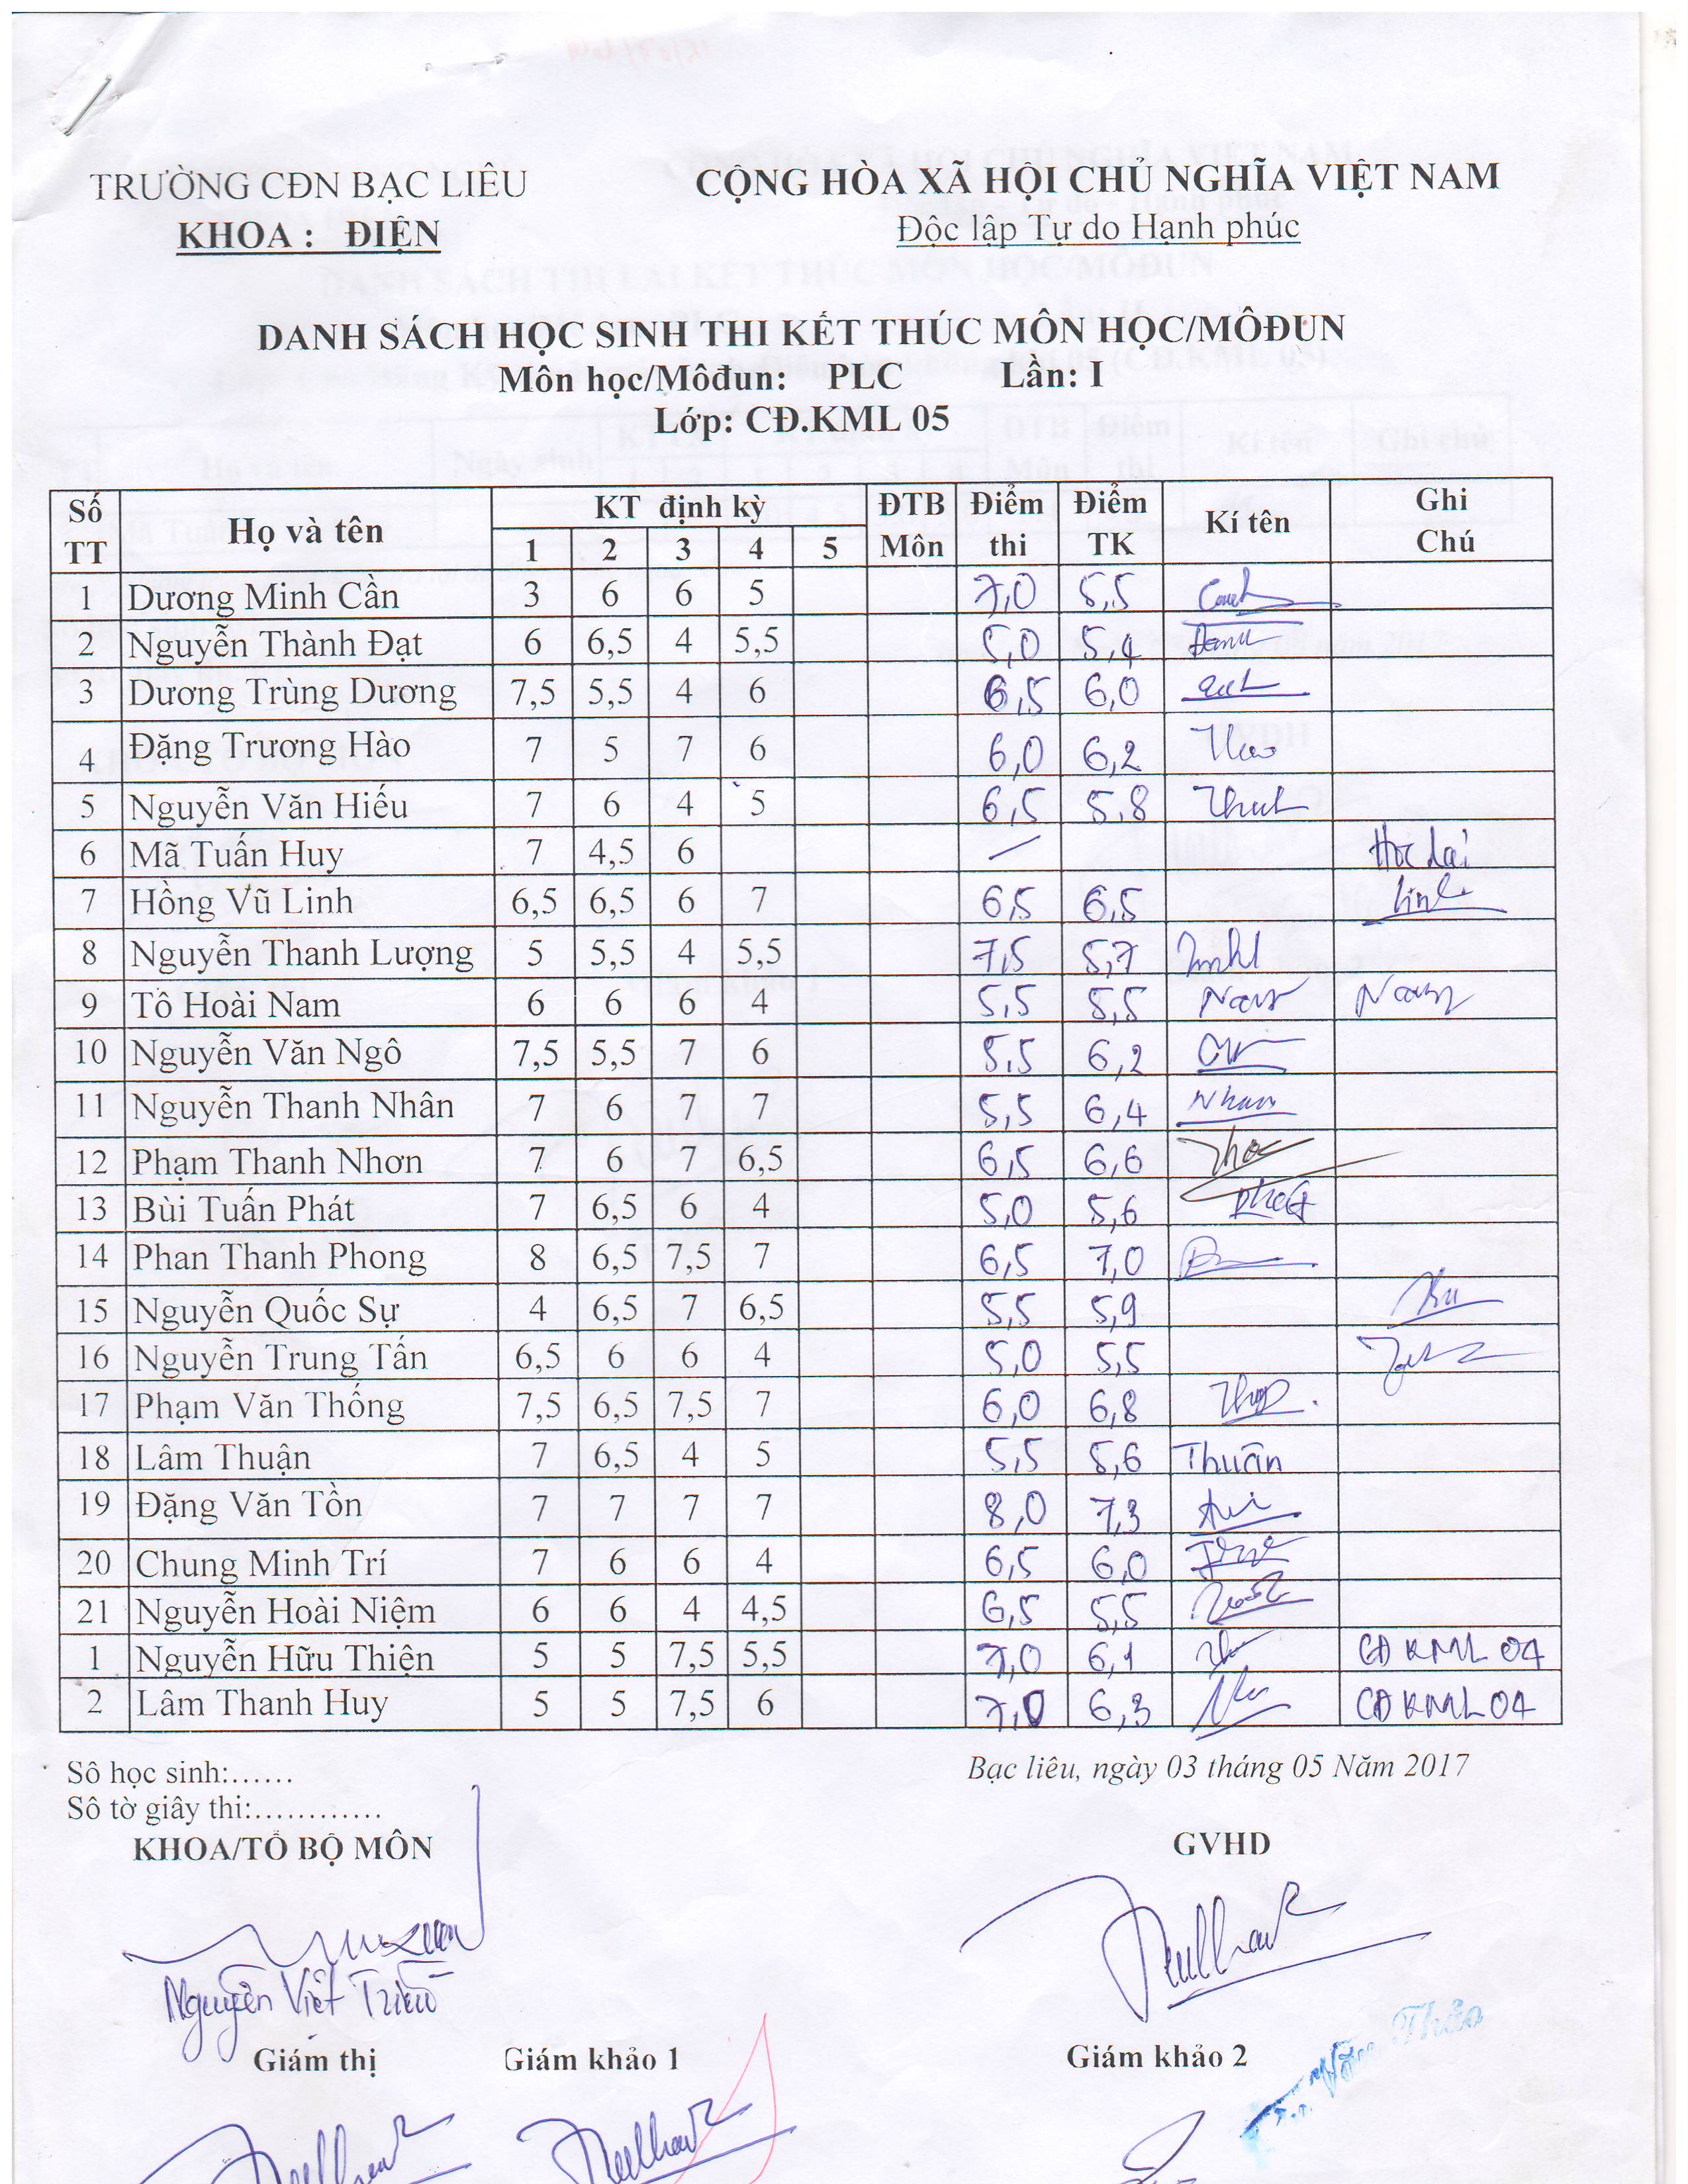 TRƯỜNG CĐN BẠC LIÊU
KHOA : ĐIỆN
CỘNG HÒA XÃ HỘI CHỦ NGHĨA VIỆT NAM
Độc lập Tự do Hạnh phúc
DANH SÁCH HỌC SINH THI KẾT THÚC MÔN HỌC/MÔĐUN
Môn học/Môđun: PLC Lần: I
Lớp: CĐ.KML 05
Số TT Họ và tên KT định kỳ 1 2 3 4 5 ĐTB Môn Điểm thi Điểm TK Kí tên Ghi Chú
1 Dương Minh Cần 3 6 6 5 7,0 5,5
2 Nguyễn Thành Đạt 6 6,5 4 5,5 5,0 5,4
3 Dương Trùng Dương 7,5 5,5 4 6 6,5 6,0
4 Đặng Trương Hào 7 5 7 6 6,0 6,2
5 Nguyễn Văn Hiếu 7 6 4 5 6,5 5,8
6 Mã Tuấn Huy 7 4,5 6 Học lại
7 Hồng Vũ Linh 6,5 6,5 6 7 6,5 6,5 Linh
8 Nguyễn Thanh Lượng 5 5,5 4 5,5 7,5 5,7
9 Tô Hoài Nam 6 6 6 4 5,5 5,5 Nam Nam
10 Nguyễn Văn Ngô 7,5 5,5 7 6 5,5 6,2
11 Nguyễn Thanh Nhân 7 6 7 7 5,5 6,4 Nhan
12 Phạm Thanh Nhơn 7 6 7 6,5 6,5 6,6
13 Bùi Tuấn Phát 7 6,5 6 4 5,0 5,6
14 Phan Thanh Phong 8 6,5 7,5 7 6,5 7,0
15 Nguyễn Quốc Sự 4 6,5 7 6,5 5,5 5,9
16 Nguyễn Trung Tấn 6,5 6 6 4 5,0 5,5
17 Phạm Văn Thống 7,5 6,5 7,5 7 6,0 6,8
18 Lâm Thuận 7 6,5 4 5 5,5 5,6 Thuận
19 Đặng Văn Tồn 7 7 7 7 8,0 7,3
20 Chung Minh Trí 7 6 6 4 6,5 6,0
21 Nguyễn Hoài Niệm 6 6 4 4,5 6,5 5,5
1 Nguyễn Hữu Thiện 5 5 7,5 5,5 7,0 6,1 CĐ KML 04
2 Lâm Thanh Huy 5 5 7,5 6 7,0 6,3 CĐ KML 04
Sô học sinh:......
Sô tờ giây thi:............
Bạc liêu, ngày 03 tháng 05 Năm 2017
KHOA/TỔ BỘ MÔN
GVHD
Nguyễn Viết Triều
Giám thị Giám khảo 1 Giám khảo 2